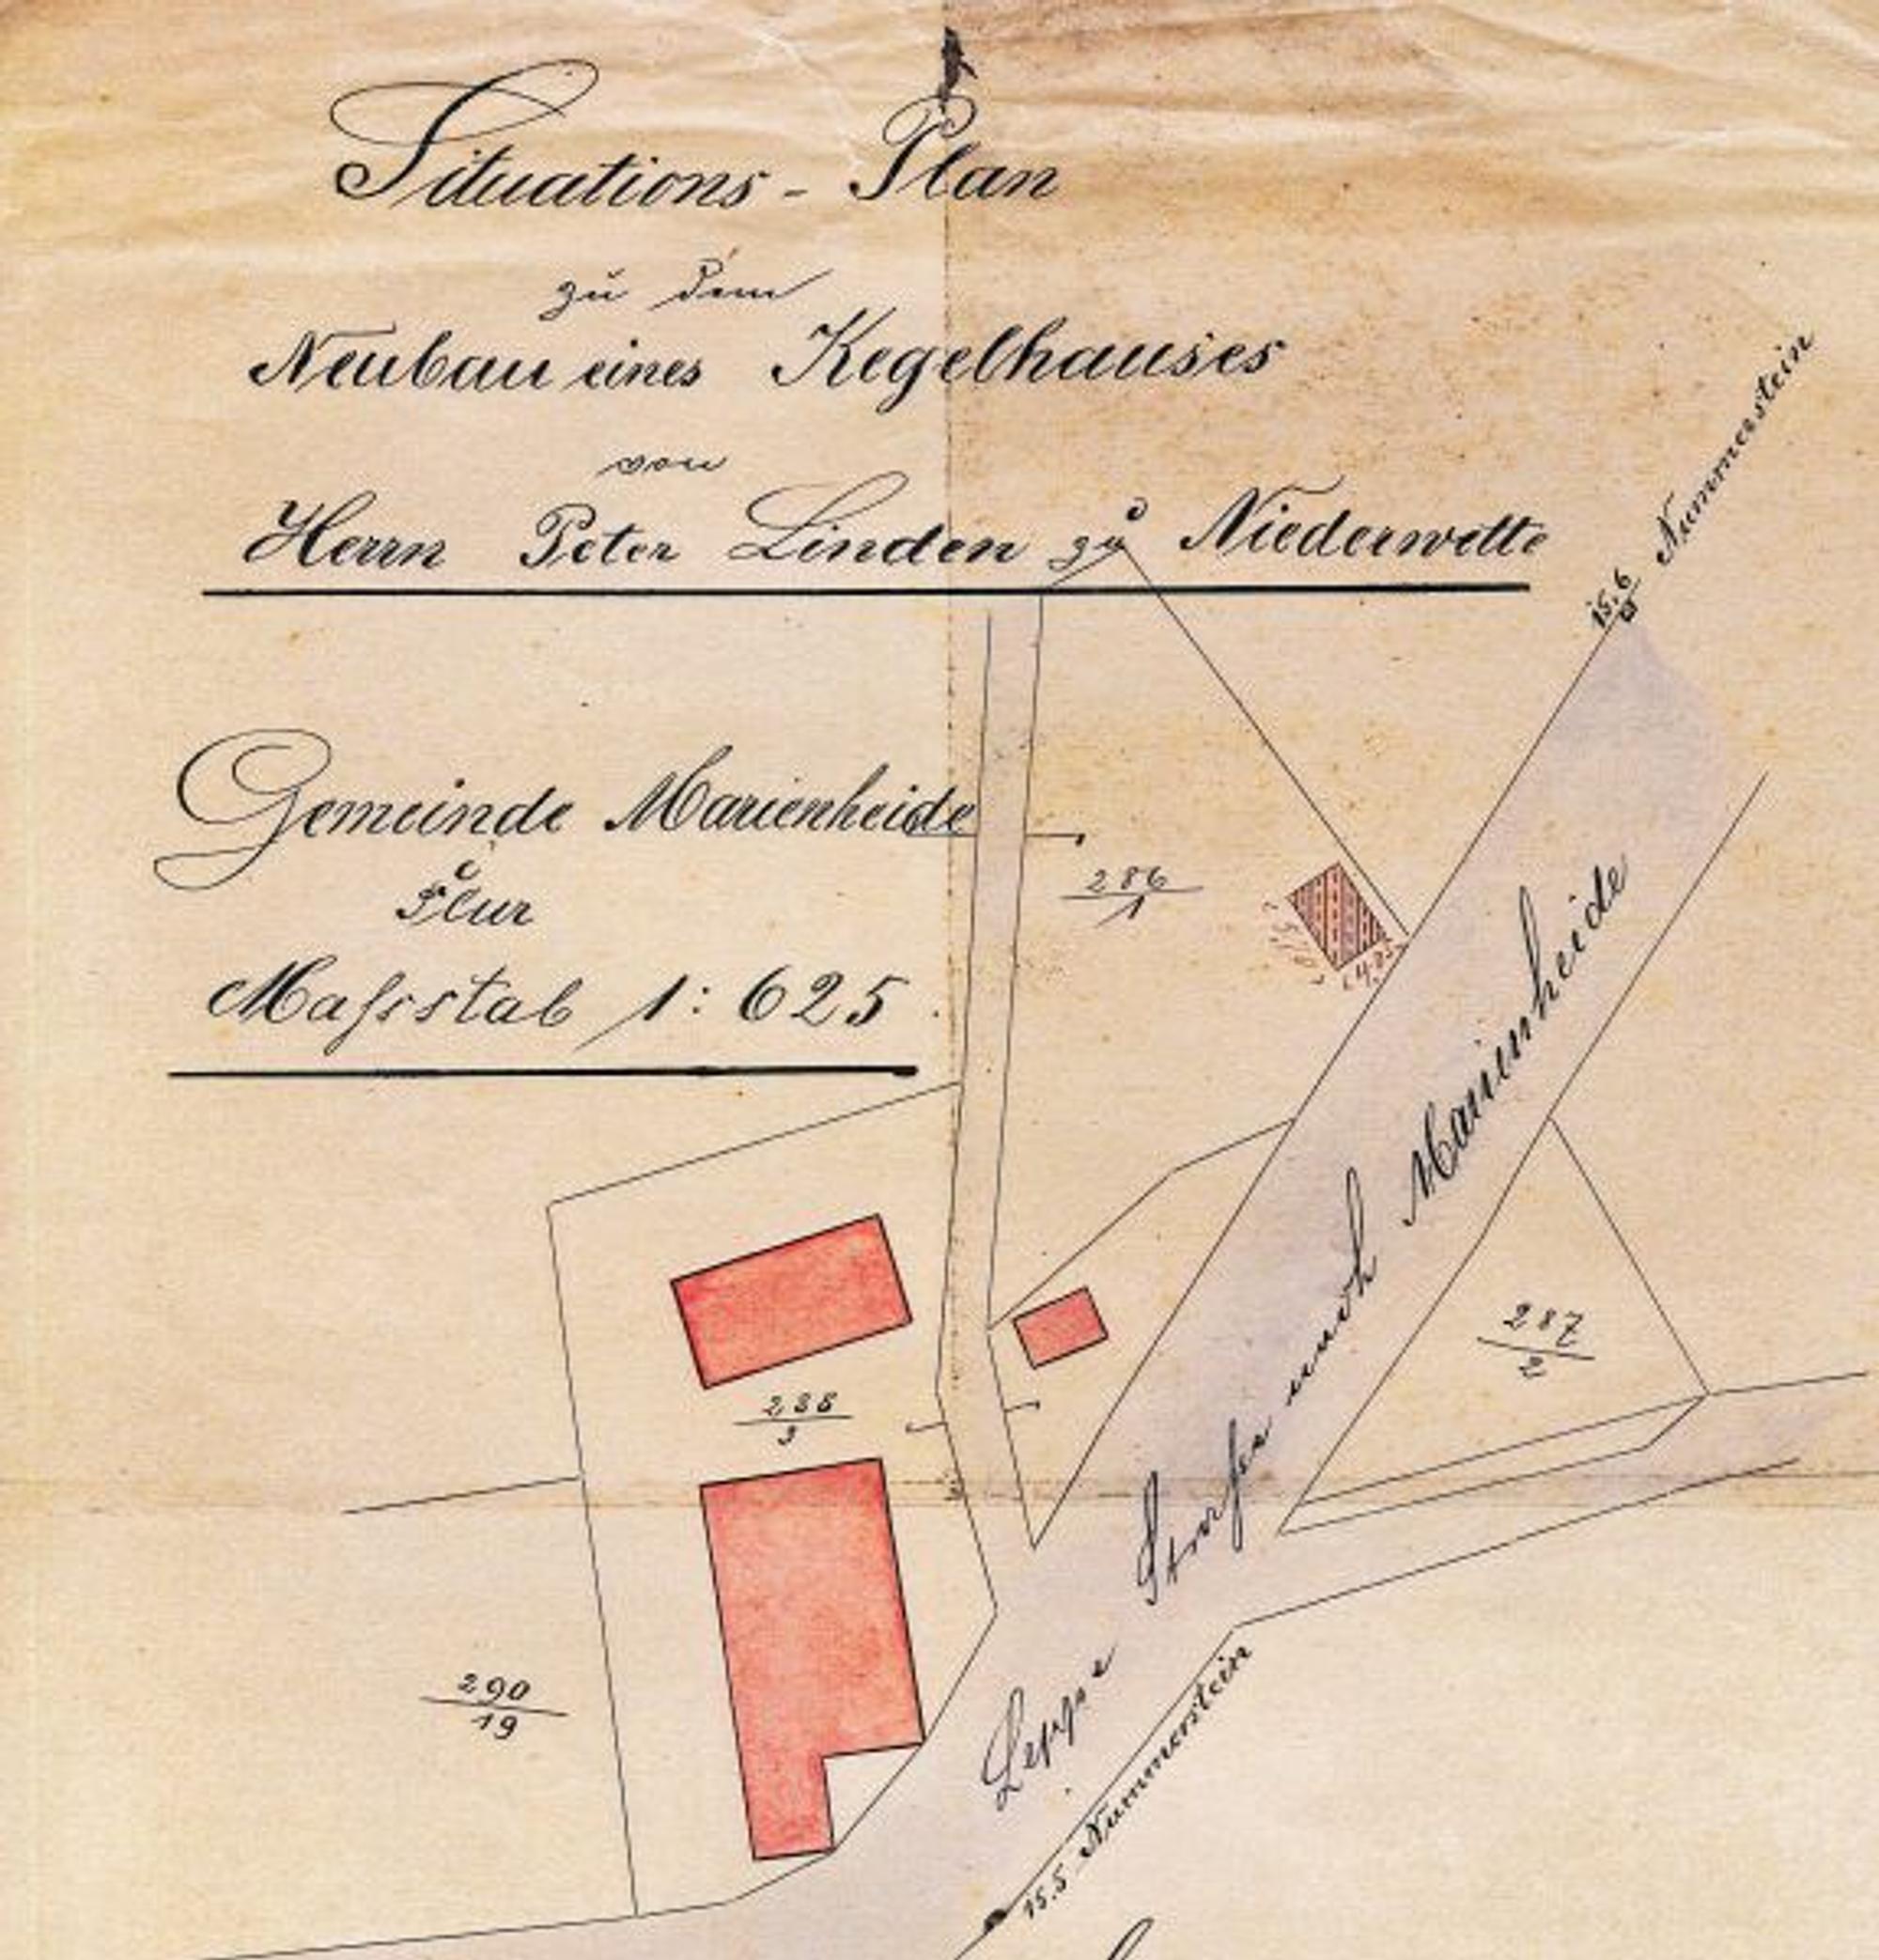 Situations - Plan
zu dem
Neubau eines Kegelhauses
von
Herrn Peter Linden zu Niederwette
Gemeinde Marienheide
Flur
Maßstab 1: 625
15.6 Nummerstein
286
1
Straße nach Marienheide
287
2
3
290
19
Leppe
15.5 Nummerstein